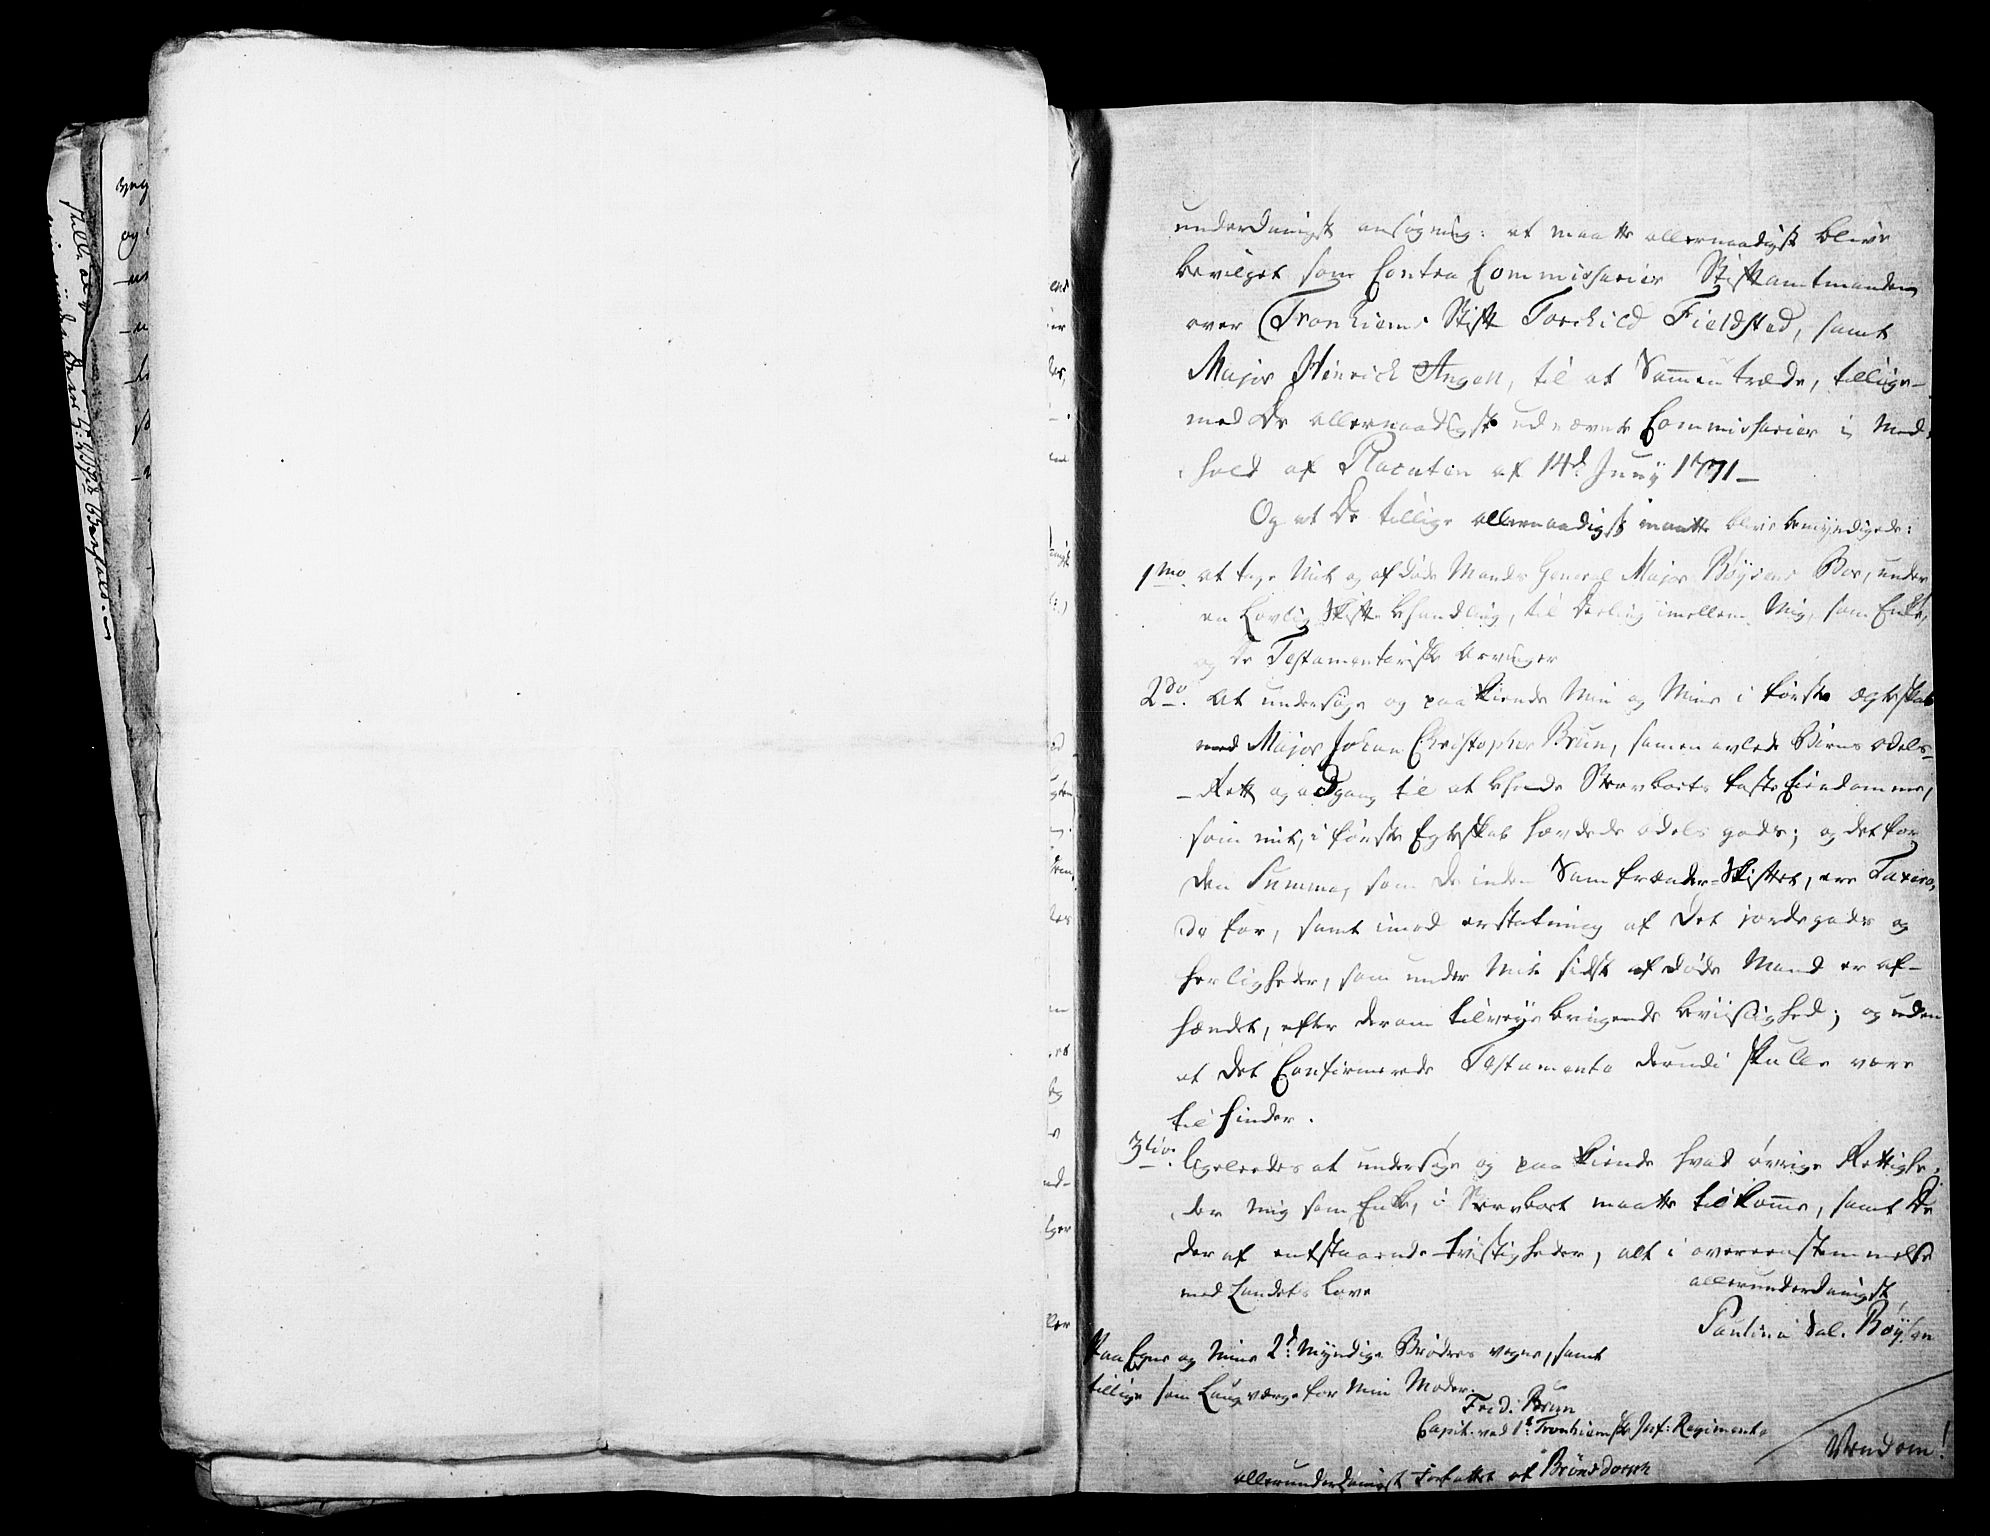 underdanigst ansøgning: at maatte allernaadigst blive
bevilget som Contra Commissarier Stiftamtmanden
over Tronhiems Stift Torchild Fieldsted, samt
Major Hinrich Angell, til at Sammentræde, tillige-
med de allernaadigst udnævnte Commissarier i Med-
hold af Placaten af 14d Junÿ 1771 -
Og at de tillige allernaadigst maatte blive bemyndigede:
1mo at tage Mit og afdøde Mands General Major Böÿsens Boe, under
en Lovlig Skifte behandling, til Deeling imellem Mig, som Enke,
og de Testamentariske arvinger
2do. At undersøge og paakiende Min og Mine i første Ægteskab
med Major Johan Christopher Brun, sammenavlede Børns Odels-
-Rett og adgang til at beholde Stervboets faste Eiendomme,
som mit, i første Egteskab hævdede odels gods; og det for
den Summa, som de inden Samfrænder-Skiftet, ere Taxere-
de for, samt imod erstatning af det jordegods og
herligheder, som under Min sidst afdøde Mand er af-
hændet, efter derom tilveyebringende beviislighed; og uden
at det Confirmerede Testamente derudi skulle være
til hinder.
3tio. Ligeleedes at undersøge og paakiende hvad øvrige Rettighe-
der mig som Enke, i Stervboet maatte tilkomme, samt de
deraf entstaaende tvistigheder, alt i overeenstemmelse
med Landets Love
allerunderdanigst
Paulina Sal. Böÿsen
Paa Egne og Mine 2de Myndige Brødres vegne, samt
tillige som Laugværge for Min Moder.
Fred. Brun
Capit. ved 1t Tronhiemske Inf: Regimente
Vend om!
allerunderdanigst Forfattet af Brønsdorph